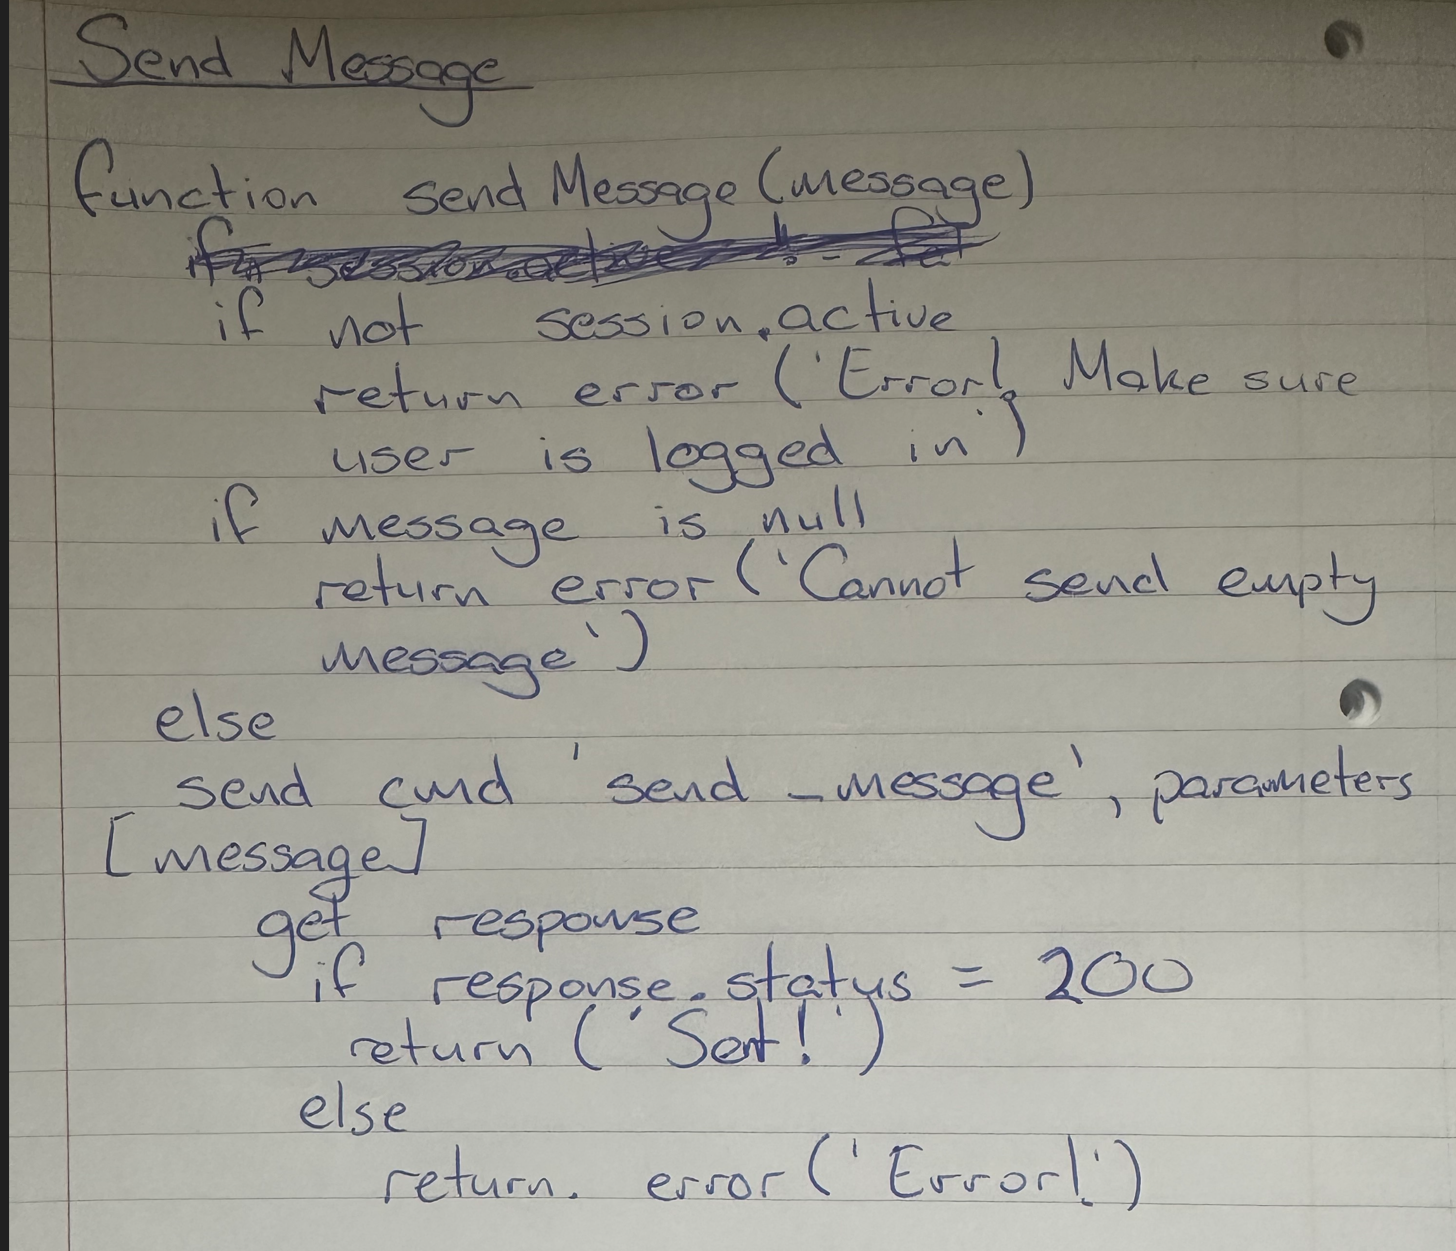 Send Message
function sendMessage(message)
if not session.active
return error ('Error! Make sure
user is logged in')
if message is null
return error ('Cannot send empty
message')
else
send cmd 'send_message', parameters
[message]
get response
if response.status = 200
return ('Sent!')
else
return. error ('Error!')